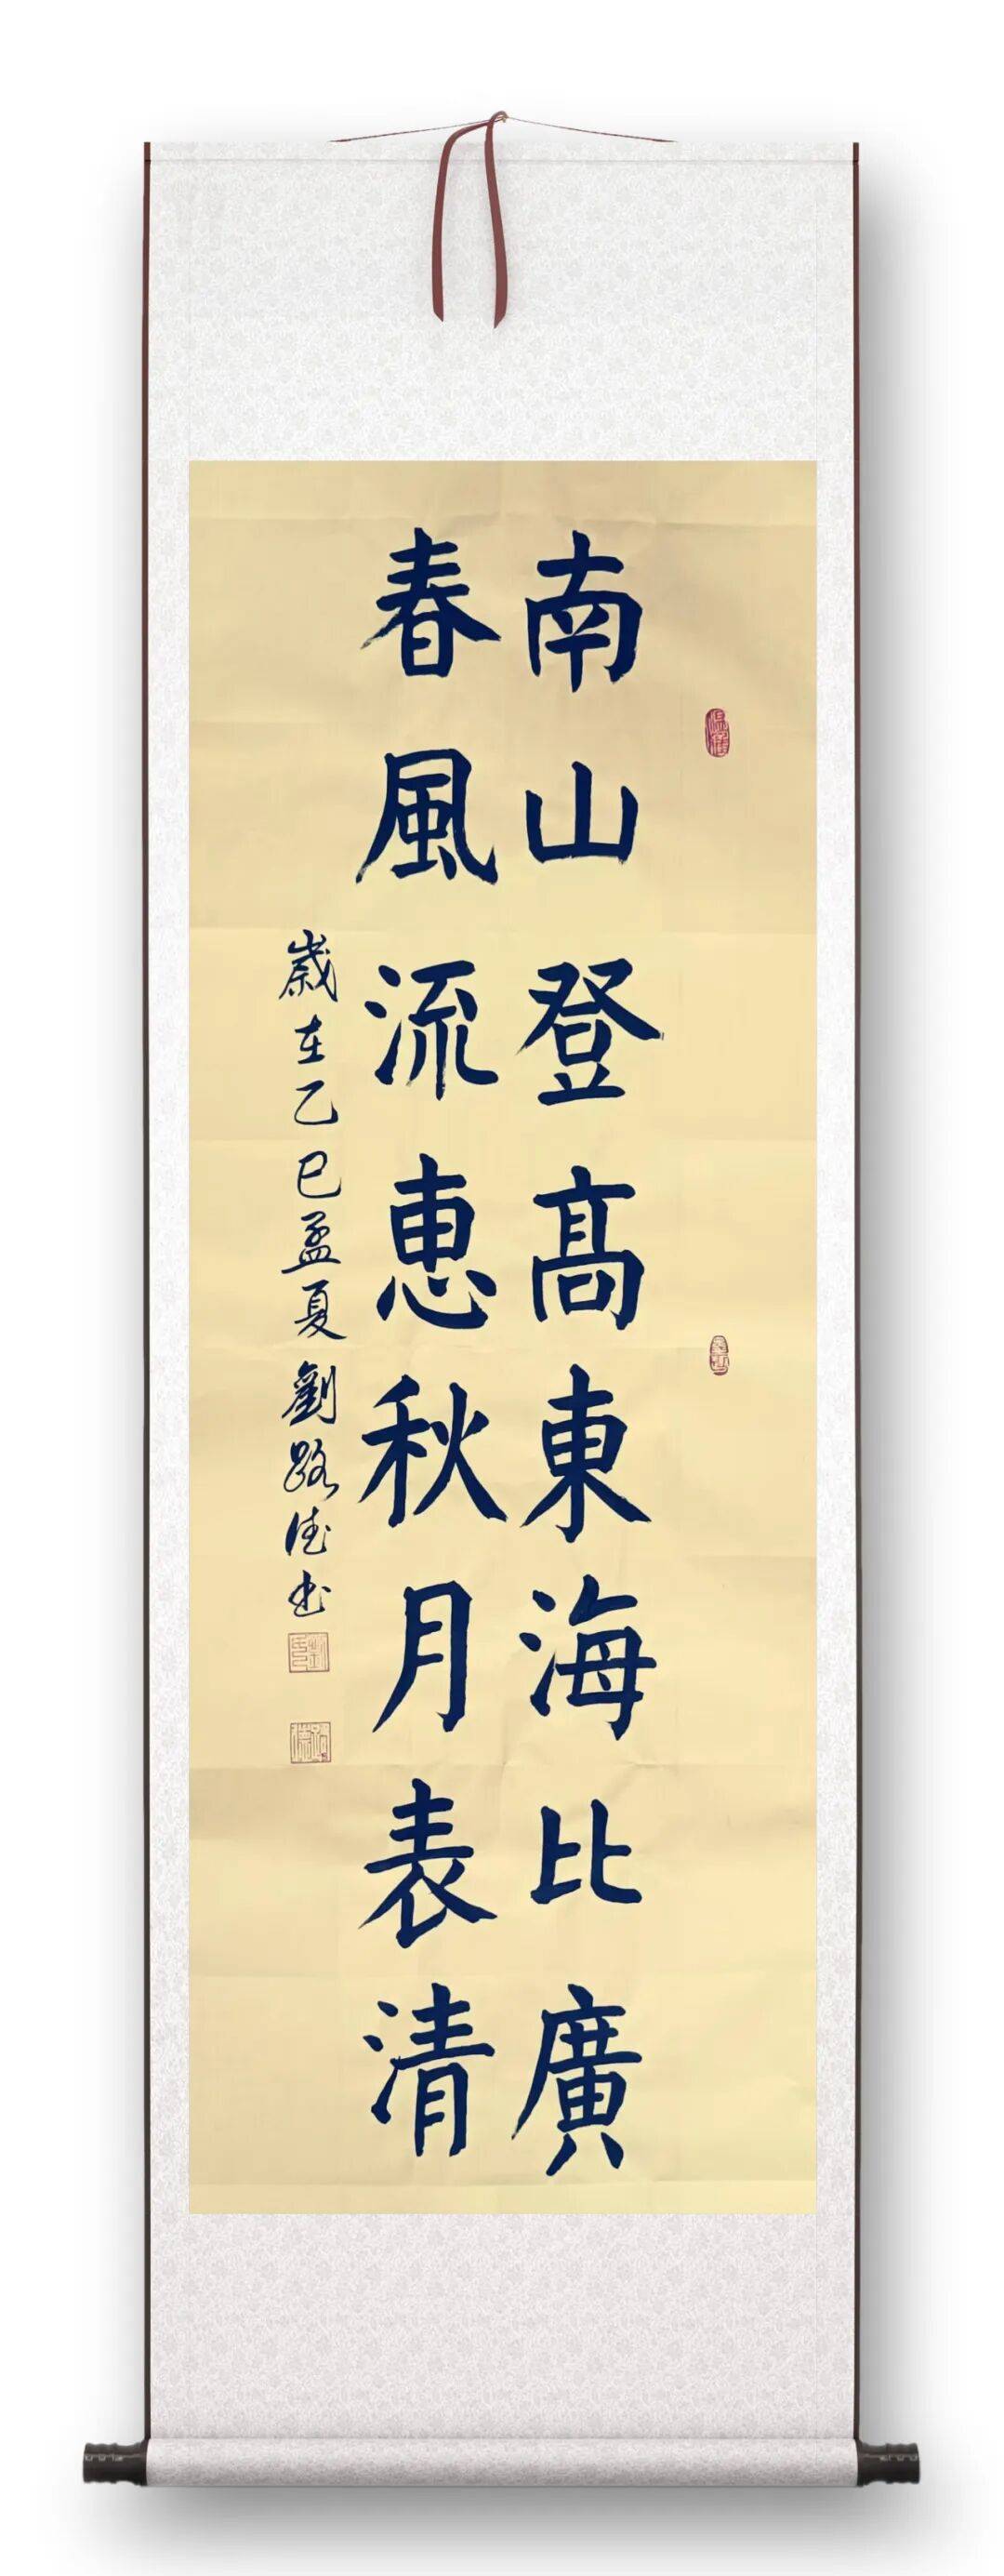 南山登髙東海比廣
春風流恵秋月表清
歲在乙巳孟夏劉路德书